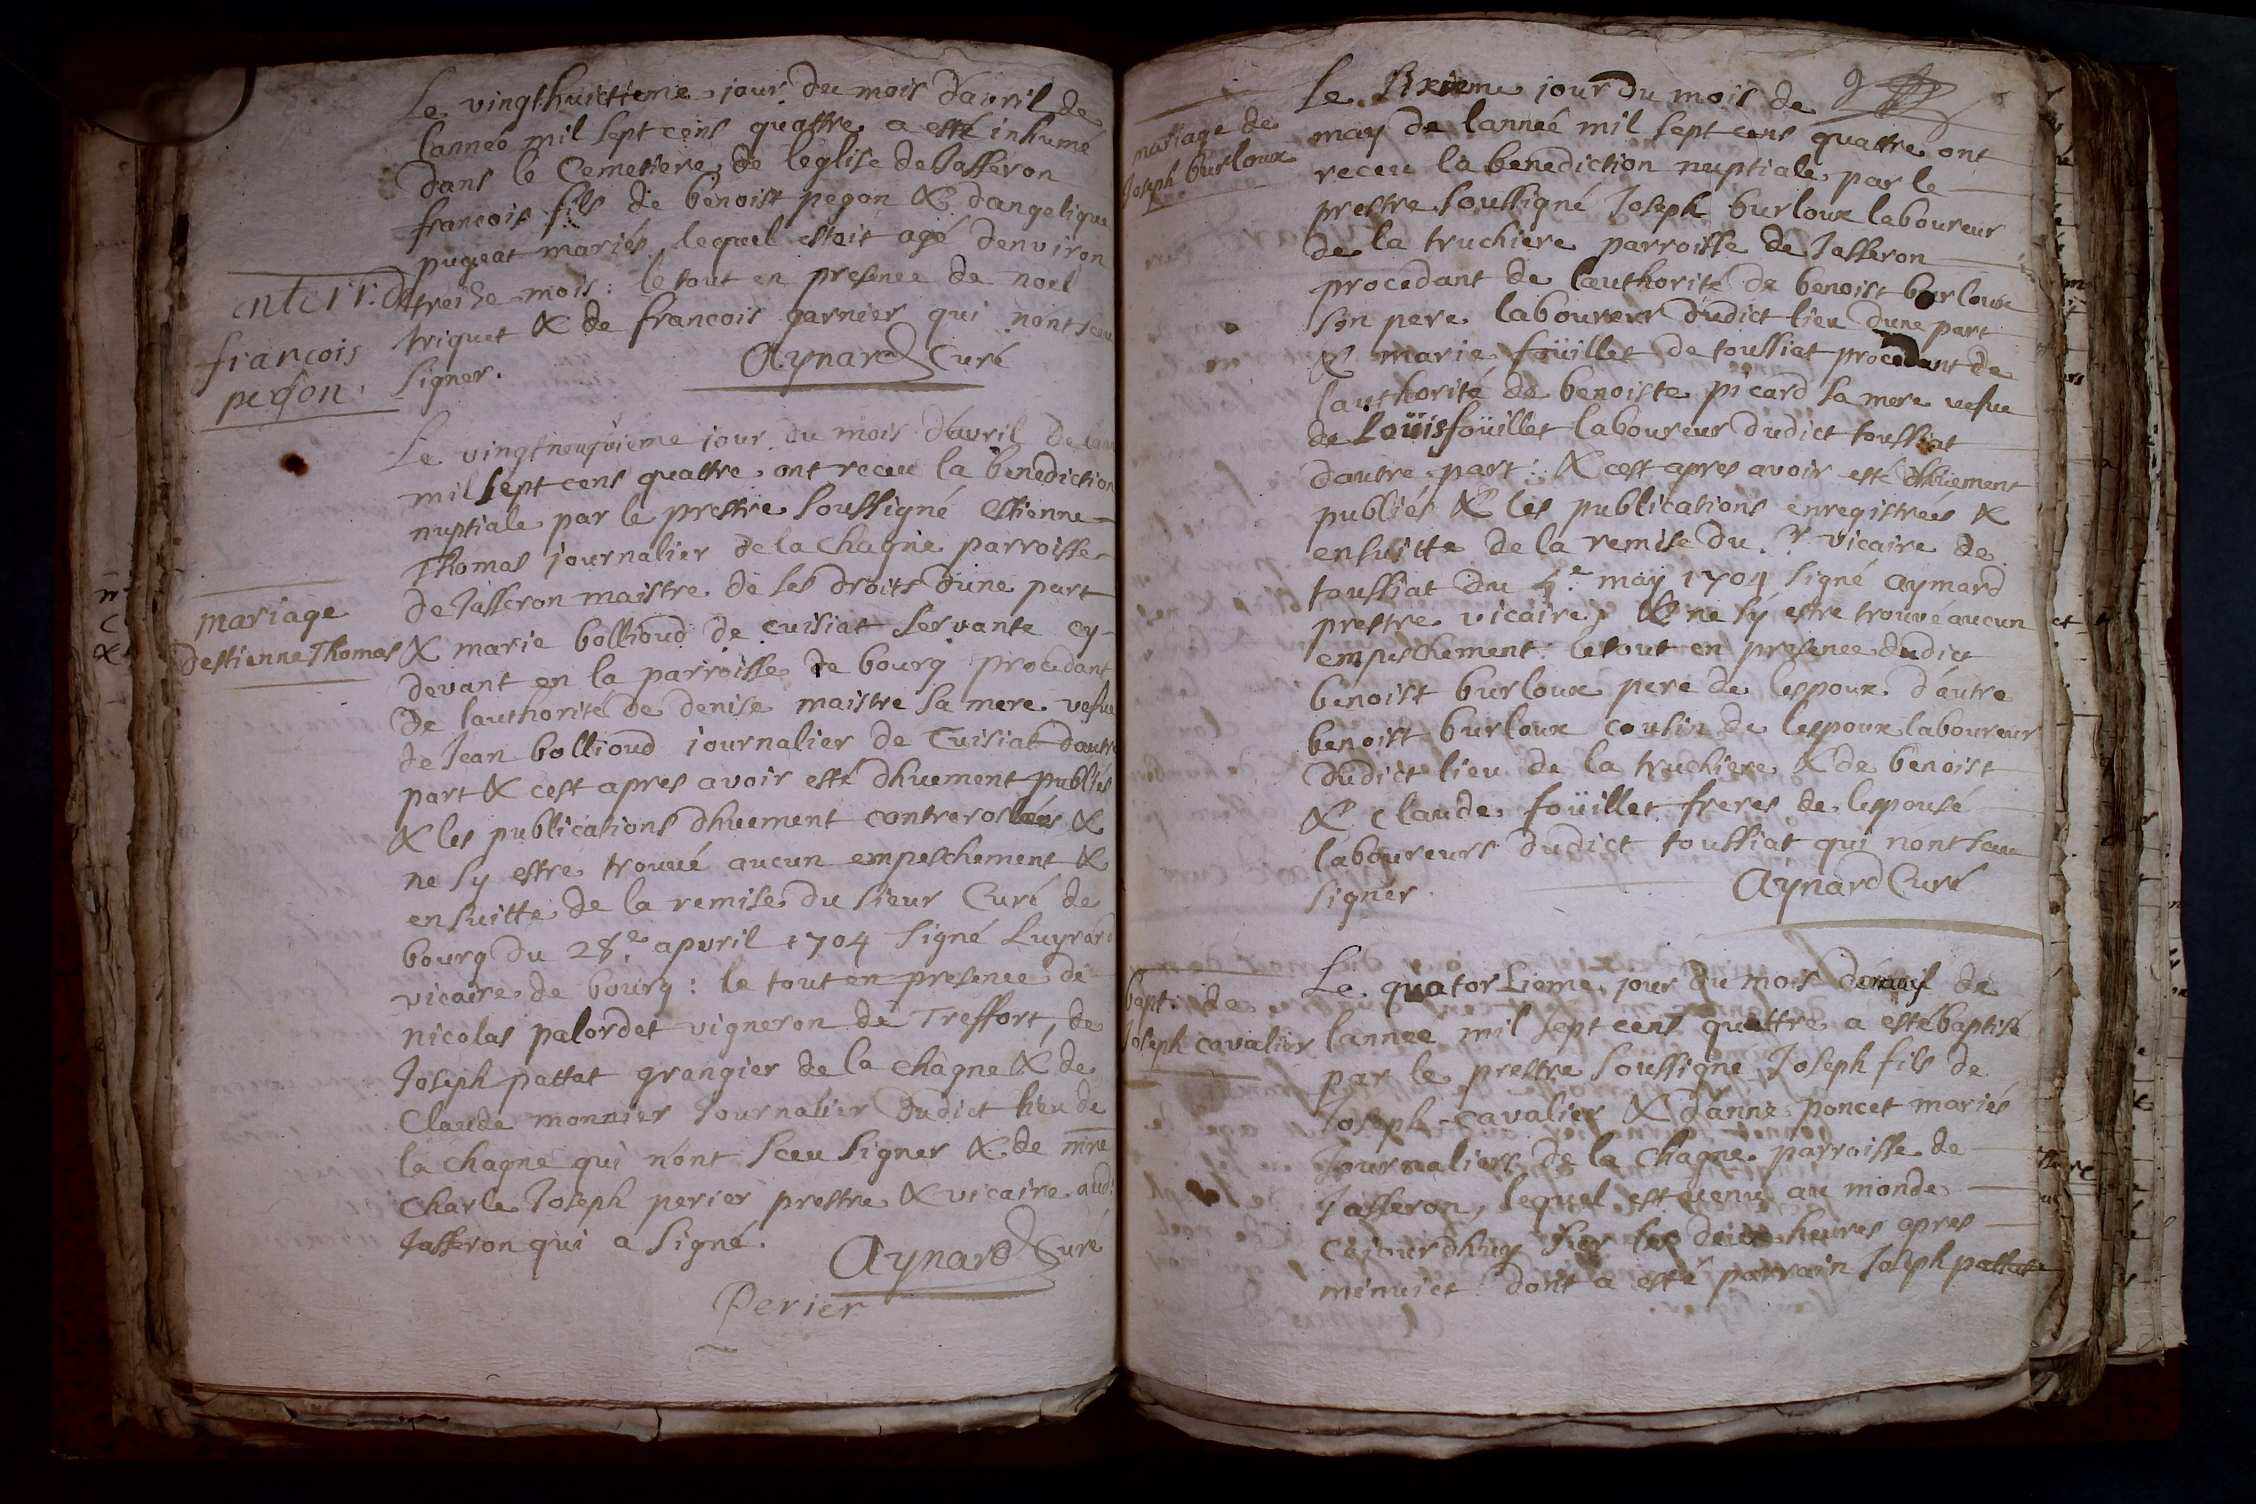 Le vingthuictieme jour du mois d'avril de
lanneé mil sept cens quattre a esté inhumé
dans le Cemetiere de leglise de Jasseron
francois fils de benoist pegon & dangelique
pugeat mariés, lequel estoit agé denviron
treize mois: le tout en presence de noel
triquet & de francois garnier qui n'ont sceu
signer. Aynard Curé
enterr. de
francois
pegon.
Le vingtneufvieme jour du mois d'avril de lan
mil sept cens quattre ont receu la benediction
nuptiale par le prestre soussigné Estienne
Thomas journalier de la Chagne parroisse
de Jasseron maistre de ses droits d'une part
& marie bollioud de Cuisiat servante cy-
devant en la parroisse de bourg procedant
de lauthorité de denise maistre sa mere vefue
de Jean bollioud journalier de Cuisiat dautre
part & cest apres avoir esté dhuement publiés
& les publications dhuement contrerollées &
ne sy estre trouué aucun empeschement &
ensuitte de la remise du sieur Curé de
bourg du 28.e apuril 1704 signé Luyrard
vicaire de bourg: le tout en presence de
nicolas palordet vigneron de Treffort, de
Joseph pattat grangier de la chagne & de
Claude monnier Journalier dudict lieu de
la chagne qui n'ont sceu signer & de mre
Charle Joseph perier prestre & vicaire aud.
Jasseron qui a signé.
Aynard Curé
Perier
mariage
destienne Thomas
9
Le sixieme jour du mois de
may de lanneé mil sept cens quattre ont
receu la benediction nuptiale par le
prestre soussigné Joseph burloux laboureur
de la truchiere parroisse de Jasseron
procedant de lauthorité de benoist burloux
son pere laboureur dudict lieu dune part
& marie foüillet de toussiat procedant de
lauthorité de benoiste picard sa mere vefue
de Loüis foüillet laboureur dudict toussiat
dautre part: & cest apres avoir esté dhüement
publiés & les publications enregistreés &
ensuitte de la remise du Sr vicaire de
toussiat du 4.e maÿ 1704 signé aymard
prestre vicaire, & ne sÿ estre trouvé aucun
empeschement: le tout en presence dudict
benoist burloux pere de lespoux. d'autre
benoist burloux cousin de lespoux laboureur
dudict lieu de la truchiere & de benoist
& claude foüillet freres de lespousé
laboureurs dudict toussiat qui n'ont sceu
signer Aynard Curé
mariage de
Joseph burloux
Le quatorzieme jour du mois de may de
lannee mil sept cens quattre a esté baptisé
par le prestre soussigné Joseph fils de
Joseph cavalier & d'anne poncet mariés
Journaliers de la Chagne parroisse de
Jasseron, lequel est venu au monde
cejourdhuy les deux heures apres
minuict dont a esté parrain Joseph pattat
bapt. de
Joseph cavalier